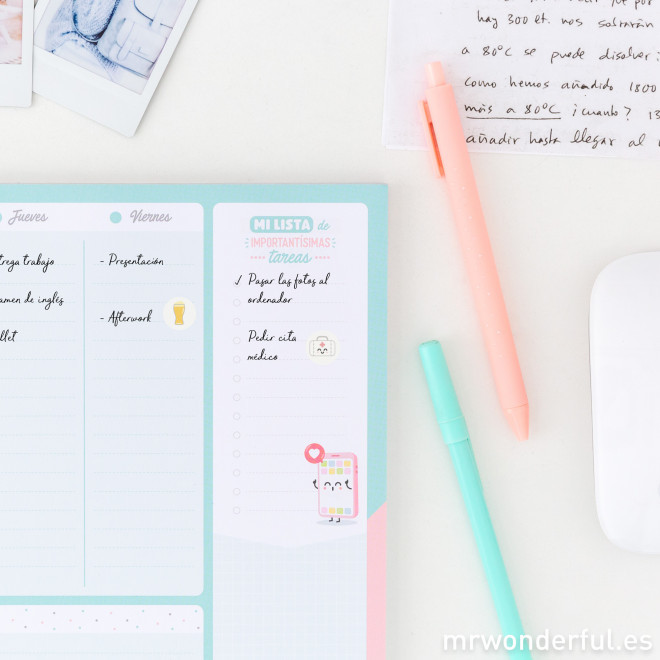 hay 300 et. nos sobrarán
a 80ºC se puede disolver:
como hemos añadido 1800
más a 80ºC ¿cuanto? 13
añadir hasta llegar al
Jueves
trega trabajo
amen de inglés
llet
Viernes
- Presentación
- Afterwork
MI LISTA de
IMPORTANTÍSIMAS
tareas
✓ Pasar las fotos al
ordenador
Pedir cita
médico
mrwonderful.es